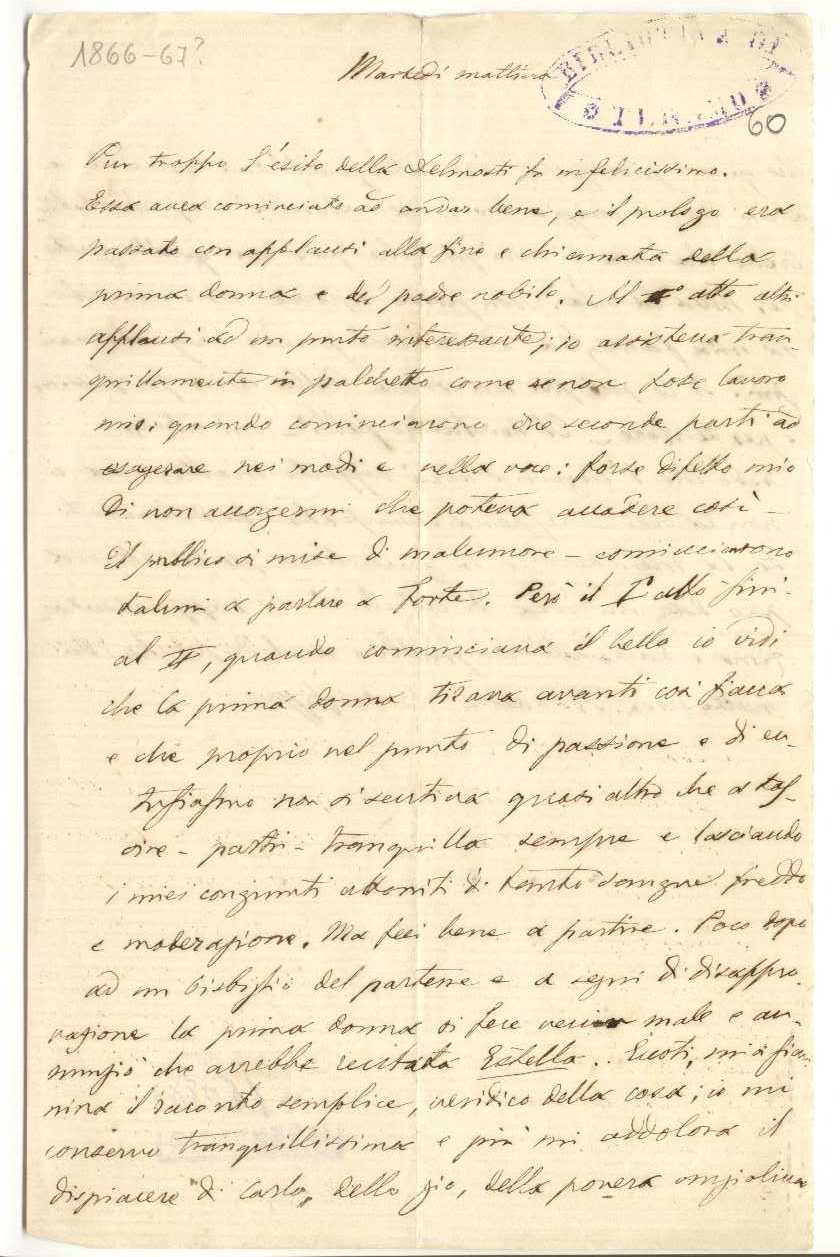 1866-67?
Martedì mattina
BIBLIOTECA DI
60
Pur troppo l'esito della Delmosti fu infelicissimo.
Essa avea cominciato ad andar bene, e il prologo era
passato con applausi alla fine e chiamata della
prima donna e del padre nobile. Al I° atto altri
applausi ad un punto interessante; io assisteva tran-
quillamente in palchetto come se non fosse lavoro
mio: quando cominciarono due seconde parti ad
esagerare nei modi e nella voce: forse difetto mio
di non accorgermi che poteva accadere così -
Il pubblico si mise di malumore - cominciarono
taluni a parlare a forte. Però il I° atto finì -
al II°, quando cominciava il bello io vidi
che la prima donna tirava avanti così fiacca
e che proprio nel punto di passione e di en-
tusiasmo non si sentiva quasi altro che a tos-
sire - partii - tranquilla sempre e lasciando
i miei congiunti attoniti di tanto sangue freddo
e moderazione. Ma feci bene a partire. Poco dopo
ad un bisbiglio del partere e a segni di disappro-
vazione la prima donna si fece venir male e an-
nunziò che avrebbe recitata Estella.. Eccoti, mia
nina il racconto semplice, veridico della cosa; io mi
conservo tranquillissima e più mi addolora il
dispiacere di Carlo, dello zio, della povera angiolina